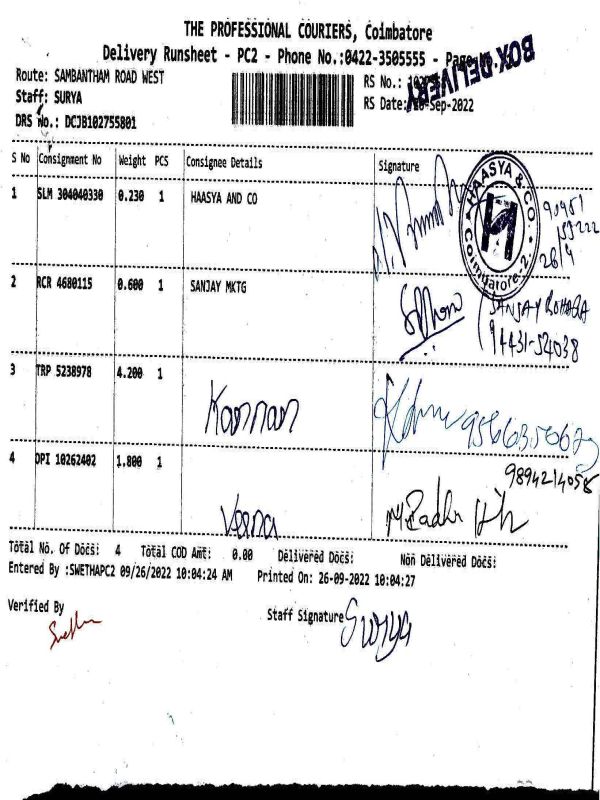 THE PROFESSIONAL COURIERS, Coimbatore
Delivery Runsheet - PC2 - Phone No.:0422-3505555 - Page
BOX DELIVERY
Route: SAMBANTHAM ROAD WEST
RS No.:
Staff: SURYA
RS Date: -Sep-2022
DRS No.: DCJB102755801
S No Consignment No Weight PCS Consignee Details Signature
1 SLM 304040330 0.230 1 HAASYA AND CO
HAASYA & CO. Coimbatore-2.
H
90951
26/9
2 RCR 4680115 0.600 1 SANJAY MKTG
SANJAY
94431-54038
3 TRP 5238978 4.200 1
Kannan
4 DPI 10262402 1.800 1
9894214058
Veena
Total No. Of Docs: 4 Total COD Amt: 0.00 Delivered Docs: Non Delivered Docs:
Entered By :SWETHAPC2 09/26/2022 10:04:24 AM Printed On: 26-09-2022 10:04:27
Verified By
Swetha
Staff Signature Surya